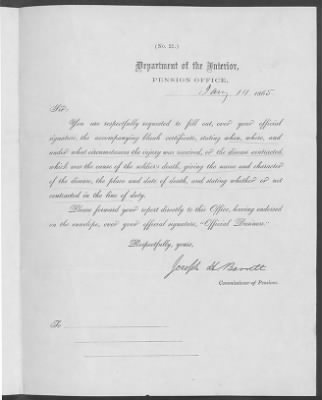 (No. 25.)
Department of the Interior,
PENSION OFFICE,
Jany 14 1865
Sir:
You are respectfully requested to fill out, over your official
signature, the accompanying blank certificate, stating when, where, and
under what circumstances the injury was received, or the disease contracted,
which was the cause of the soldier's death, giving the name and character
of the disease, the place and date of death, and stating whether or not
contracted in the line of duty.
Please forward your report directly to this Office, having endorsed
on the envelope, over your official signature, "Official Business."
Respectfully, yours,
Joseph H Barrett
Commissioner of Pensions.
To